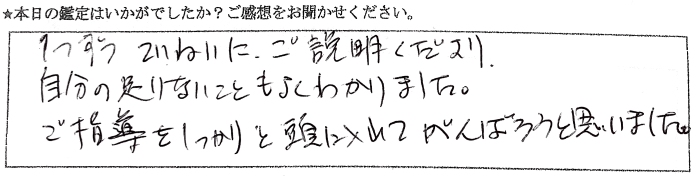 ★本日の鑑定はいかがでしたか?ご感想をお聞かせください。
1つずつていねいに、ご説明くださり、
自分の足りないこともよくわかりました。
ご指導をしっかりと頭に入れてがんばろうと思いました。